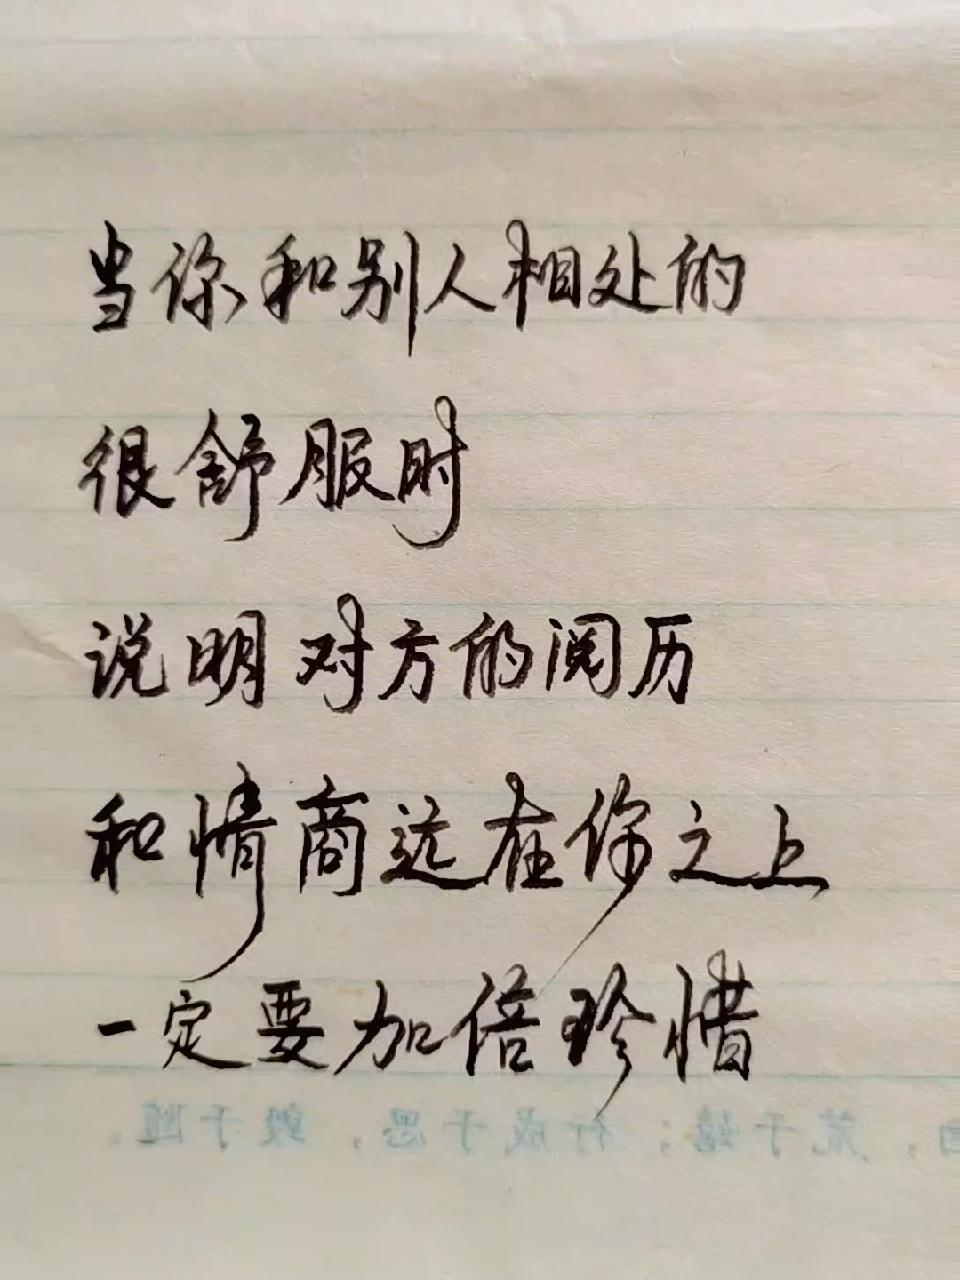 当你和别人相处的
很舒服时
说明对方的阅历
和情商远在你之上
一定要加倍珍惜
，荒于嬉；行成于思，毁于随。